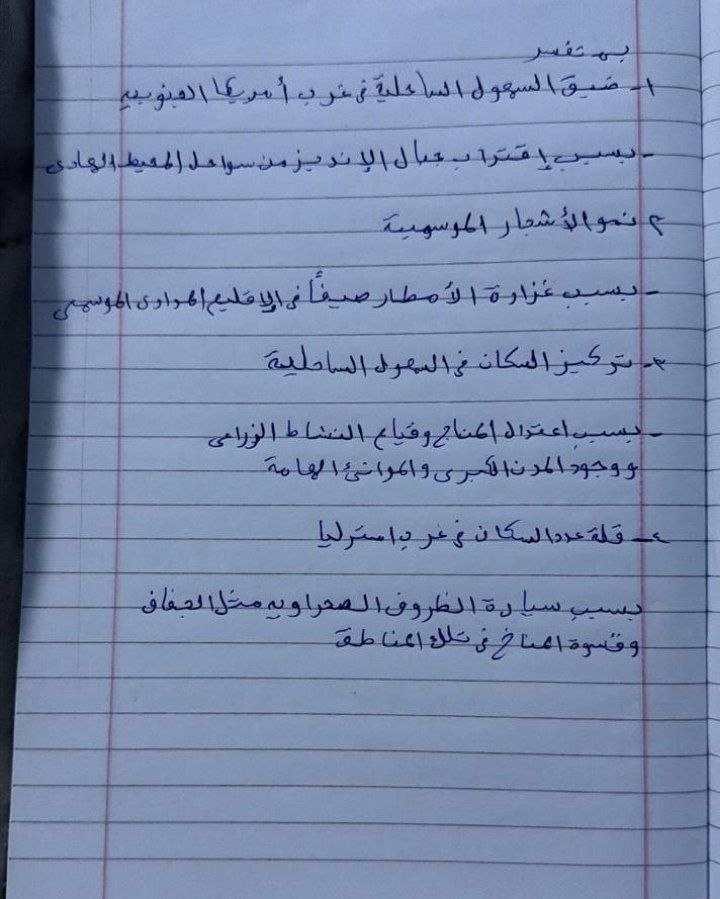 بم تفسر
١- ضيق السهول الساحلية فى غرب أمريكا الجنوبيه
- بسبب إقتراب جبال الإنديز من سواحل المحيط الهادى
٢ نمو الأشجار الموسمية
- بسبب غزارة الأمطار صيفاً فى الإقليم المدارى الموسمى
٣- تركيز السكان فى السهول الساحلية
- بسبب اعتدال المناخ وقيام النشاط الزراعى
ووجود المدن الكبرى والموانئ الهامة
٤- قلة عدد السكان فى غرب استرليا
بسبب سيادة الظروف الصحراويه مثل الجفاف
وقسوة المناخ فى تلك المناطق